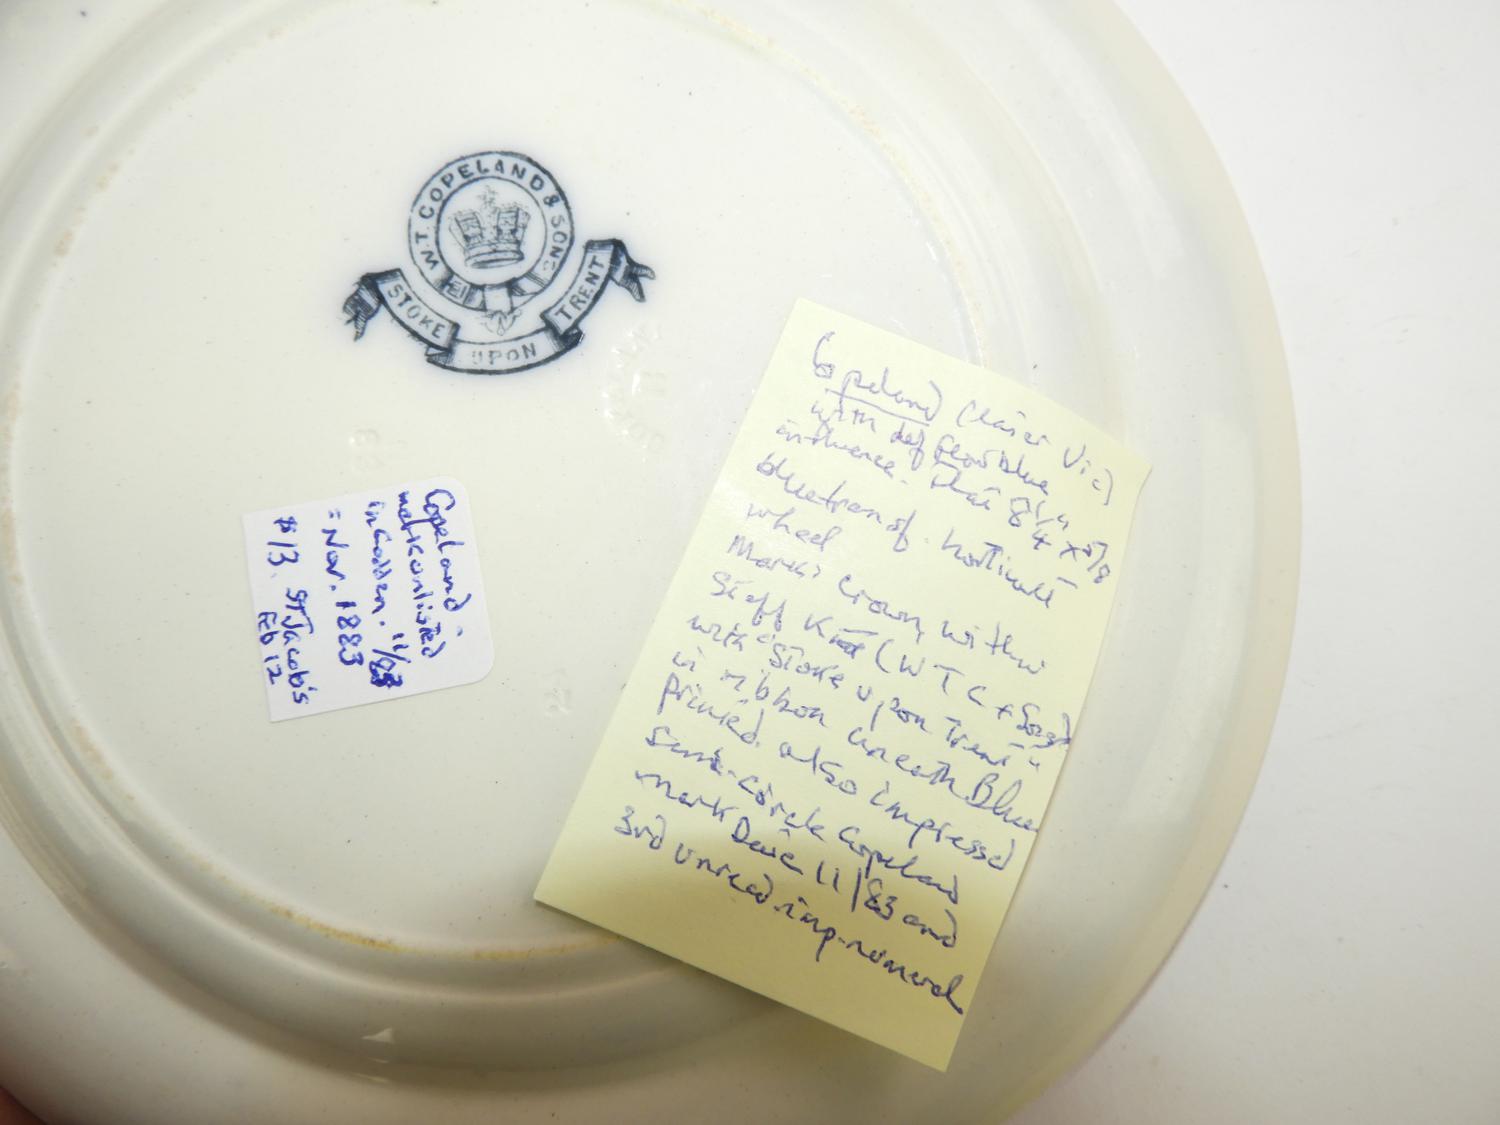 W.T. COPELAND & SONS
STOKE UPON TRENT
Copeland -
mark unlisted
in Godden. 11/83
= Nov. 1883
$13. ST Jacob's
Feb 12
Copeland Vic)
with def flow blue
influence. 8 1/4" x 7/8
blue trans of.
wheel
Mark: Crown within
(W T C & Sons)
with "Stoke upon Trent"
in ribbon uneath Blue
printed. also impressed
semi-circle Copeland
mark Date 11/83 and
3rd unread imp. numeral